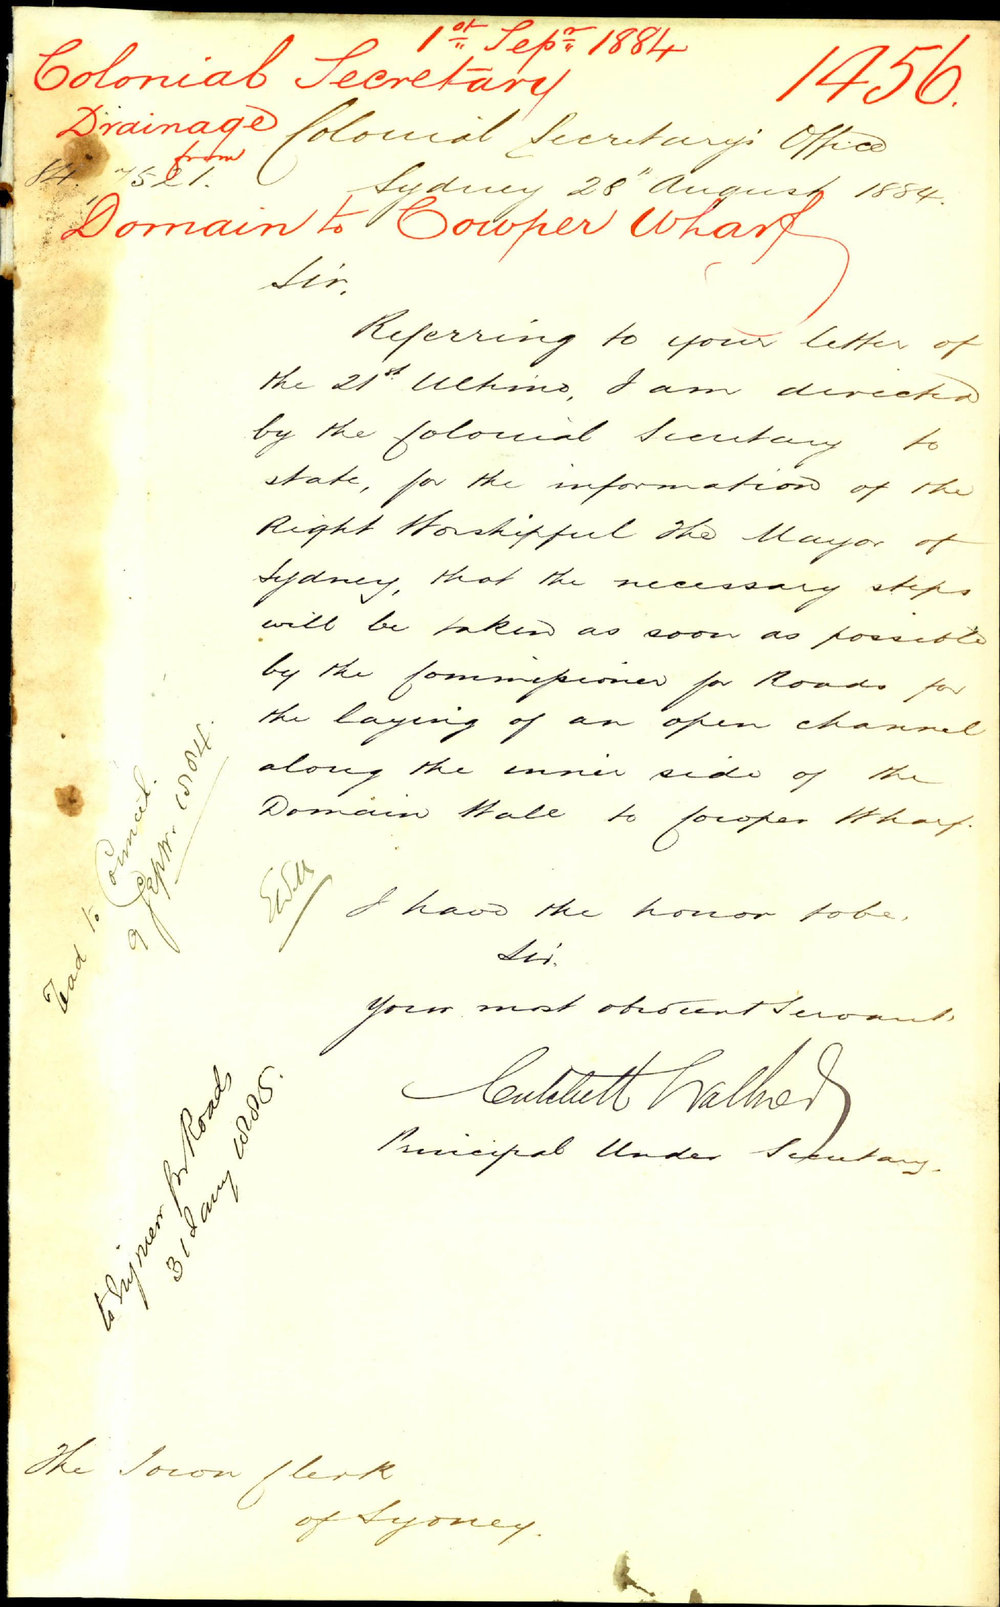 1st Sepr 1884
Colonial Secretary 1456.
Drainage
from
Domain to Cowper Wharf
Colonial Secretary's Office
84. 7521.
Sydney 28" August 1884.
Sir,
Referring to your letter of
the 21st Ultimo, I am directed
by the Colonial Secretary to
state, for the information of the
Right Worshipful The Mayor of
Sydney, that the necessary steps
will be taken as soon as possible
by the Commissioner for Roads for
the laying of an open channel
along the inner side of the
Domain Wall to Cowper Wharf.
I have the honor to be,
Sir.
Your most obedient Servant,
Critchett Walker
Principal Under Secretary.
Read to Council.
9 Sepr. 1884.
for Roads
31 Jany 1885.
The Town Clerk
of Sydney.